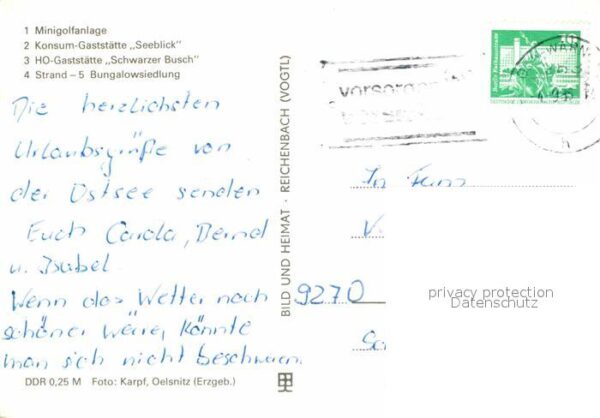 1 Minigolfanlage
2 Konsum-Gaststätte „Seeblick"
3 HO-Gaststätte „Schwarzer Busch"
4 Strand – 5 Bungalowsiedlung
Die herzlichsten
Urlaubsgrüße von
der Ostsee senden
Euch Carola, Bernd
u. Isabel.
Wenn das Wetter noch
schöner wäre, könnte
man sich nicht beschweren.
DDR 0,25 M Foto: Karpf, Oelsnitz (Erzgeb.)
BILD UND HEIMAT · REICHENBACH (VOGTL)
10
vorsorgen
In Fam
V
9270
privacy protection
Datenschutz